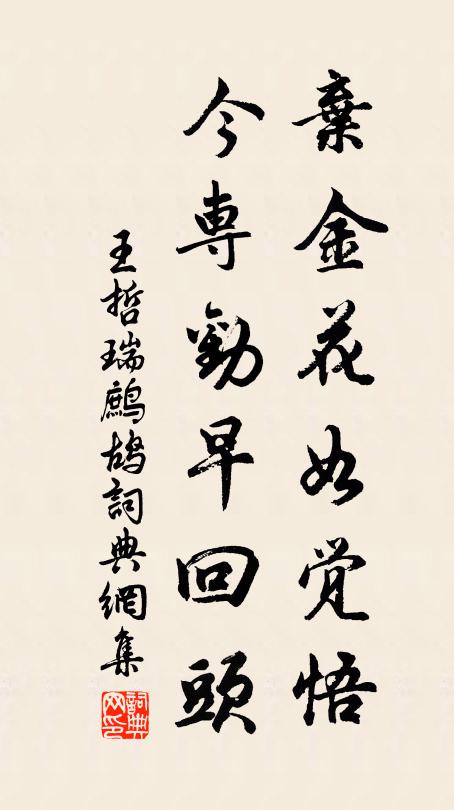 棄金花如覚悟
今専勸早回頭
王哲瑞鷓鴣詞典網集
詞典网印